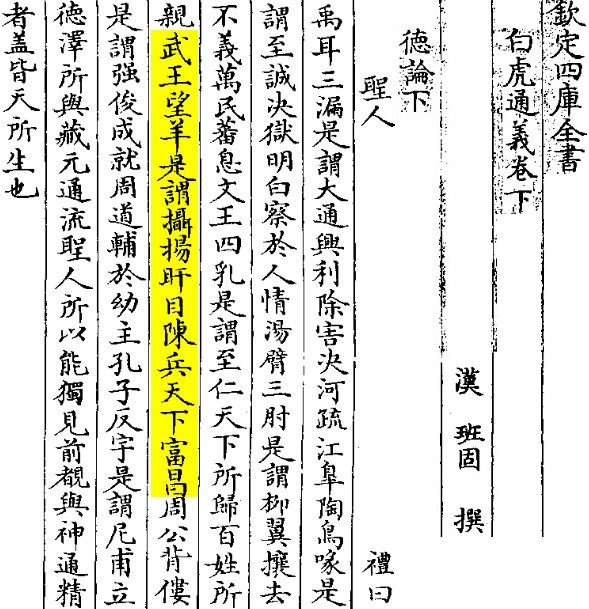 欽定四庫全書
白虎通義卷下
漢 班固 撰
德論下
聖人
禮曰
禹耳三漏是謂大通興利除害決河疏江臯陶鳥喙是
謂至誠決獄明白察於人情湯臂三肘是謂柳翼攘去
不義萬民蕃息文王四乳是謂至仁天下所歸百姓所
親武王望羊是謂攝揚盱目陳兵天下富昌周公背僂
是謂强俊成就周道輔於幼主孔子反宇是謂尼甫立
德澤所興藏元通流聖人所以能獨見前覩與神通精
者蓋皆天所生也